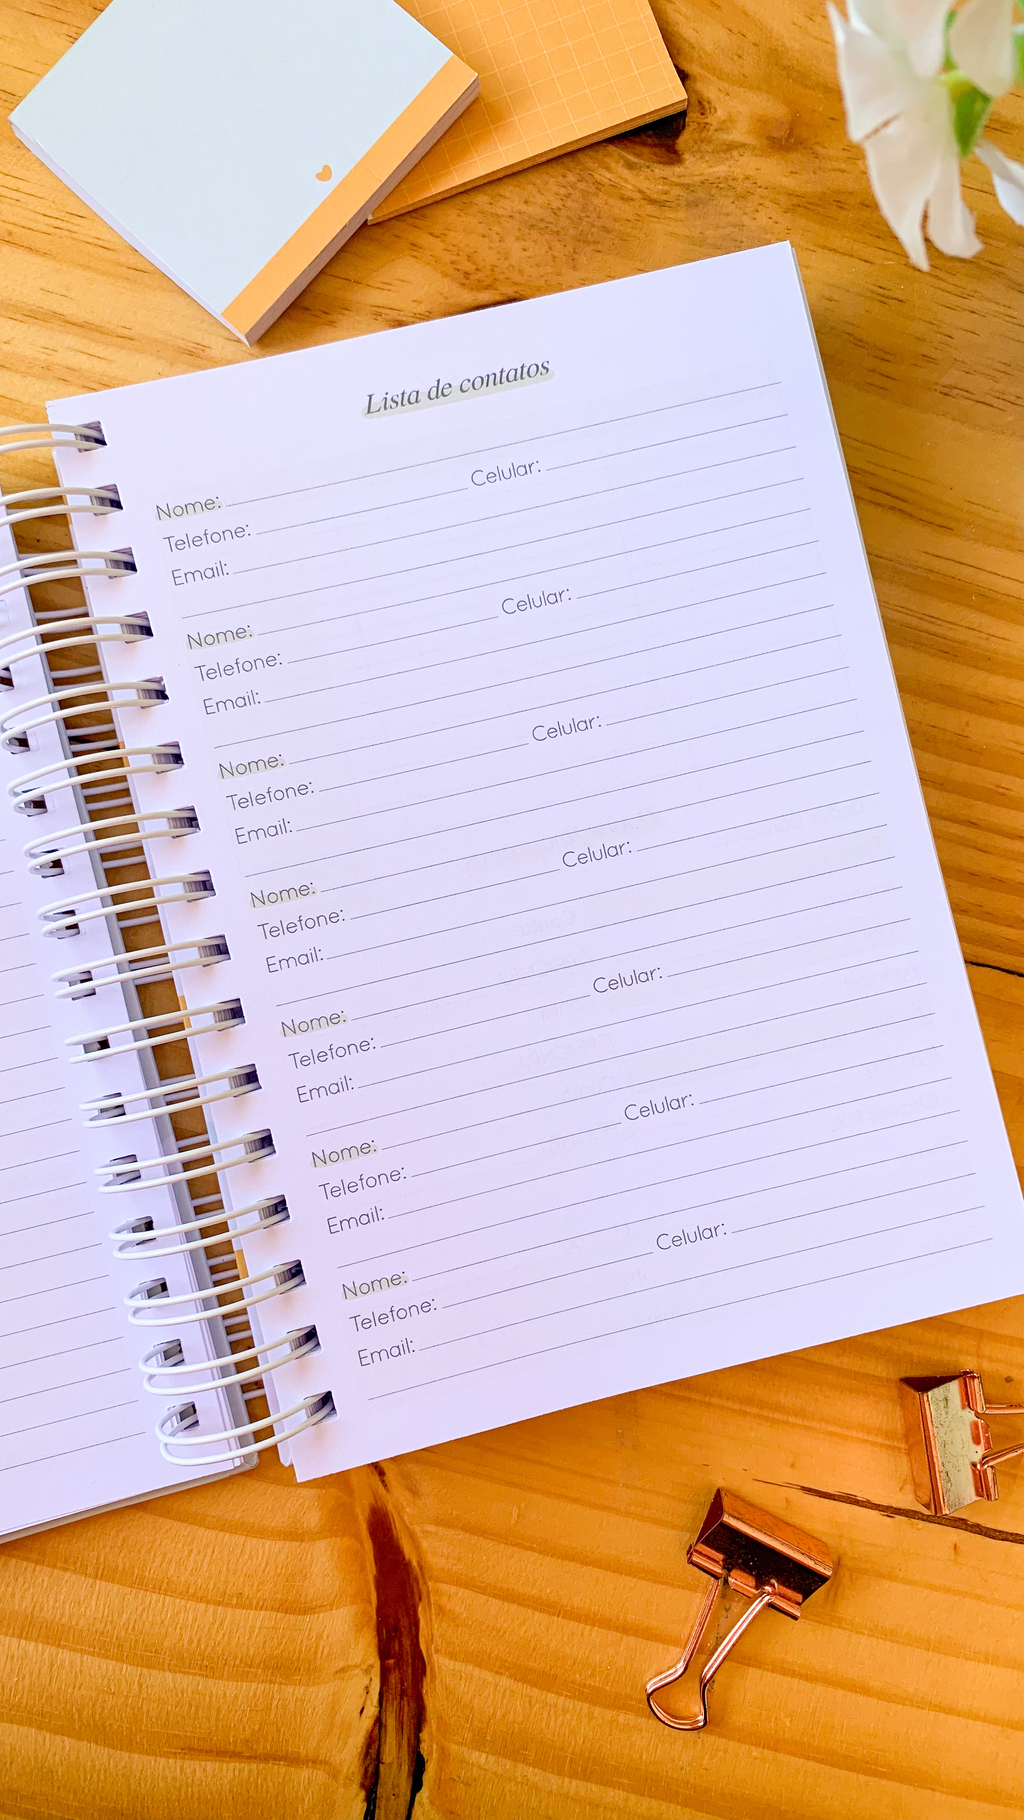 Lista de contatos
Nome:
Telefone: Celular:
Email:
Nome:
Telefone: Celular:
Email:
Nome:
Telefone: Celular:
Email:
Nome:
Telefone: Celular:
Email:
Nome:
Telefone: Celular:
Email:
Nome:
Telefone: Celular:
Email:
Nome:
Telefone: Celular:
Email: